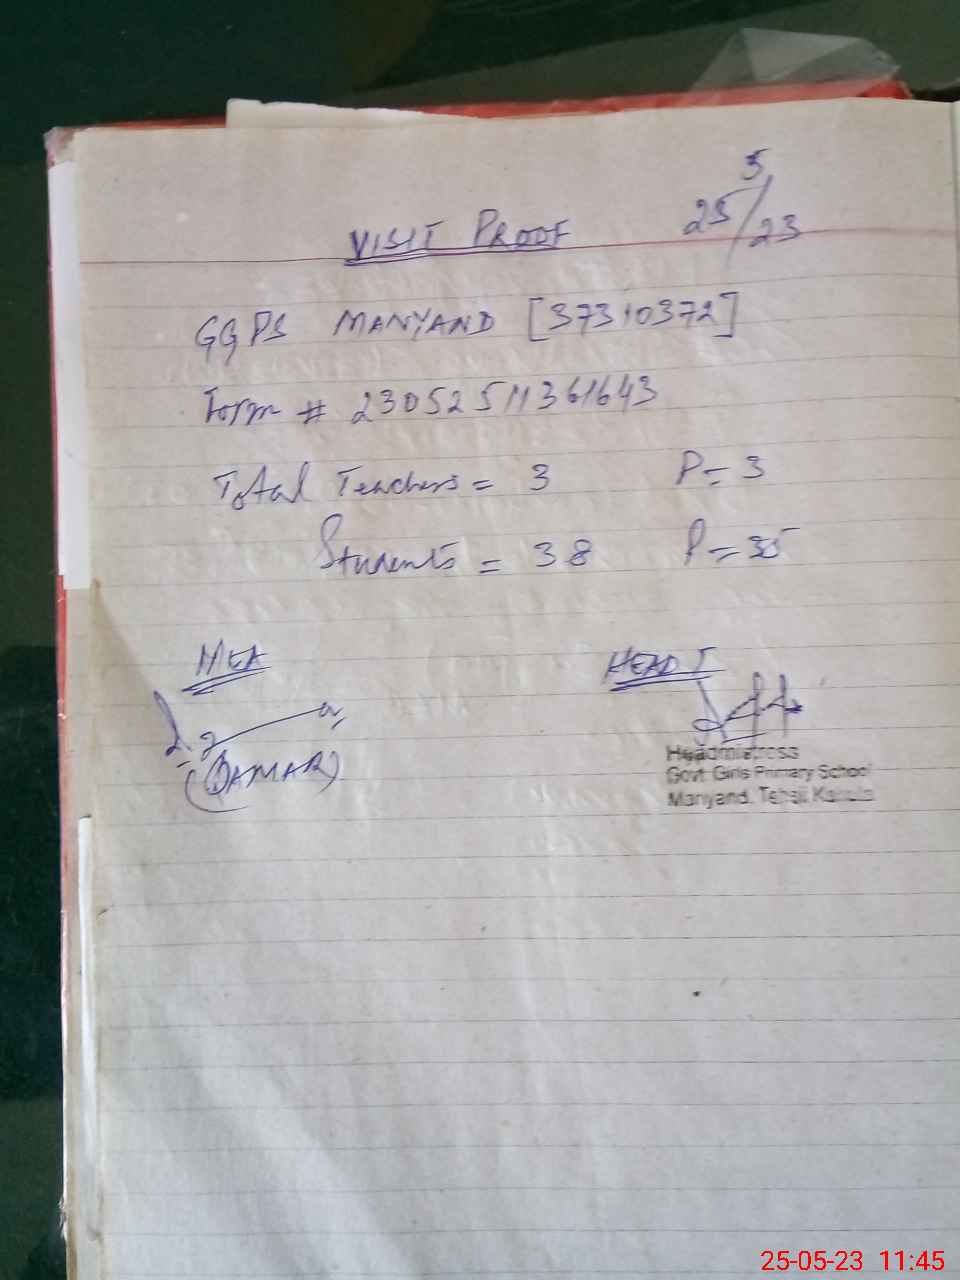 VISIT PROOF 25/5/23
GGPS MANYAND [37310372]
Form # 23052511361643
Total Teachers = 3 P = 3
Students = 38 P = 35
MEA HEAD T
(QAMAR)
Headmistress
Govt Girls Primary School
Manyand. Tehsil
25-05-23 11:45